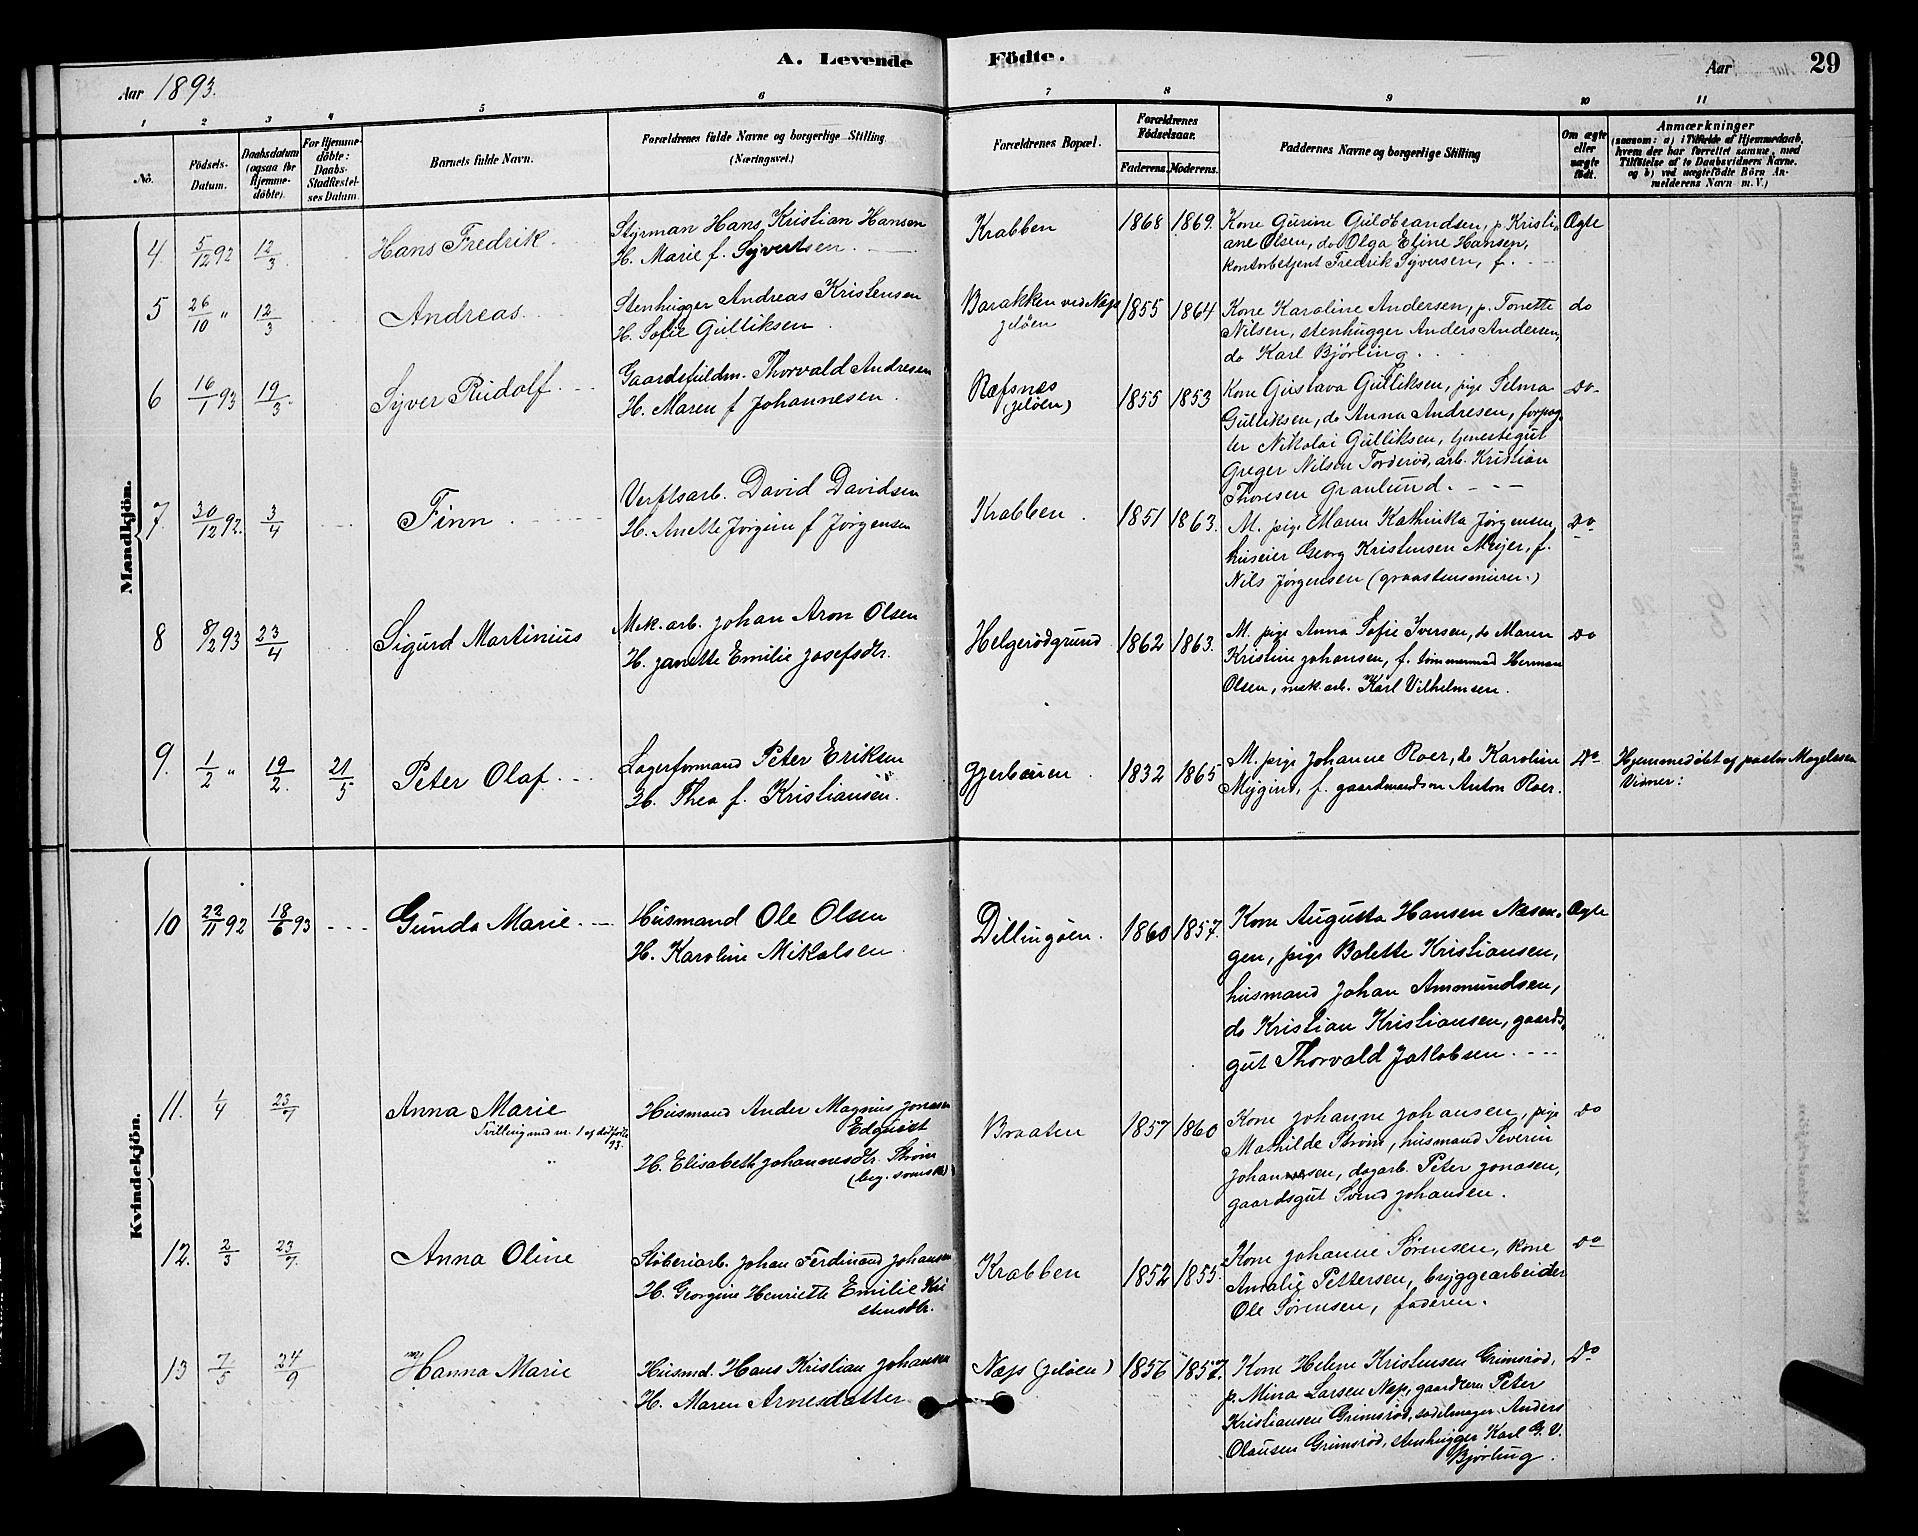 A. Levende Födte.
29
Aar 1893.
Aar
1 2 3 4 5 6 7 8 9 10 11
No.
Födsels-Datum.
Daabsdatum (ogsaa for Hjemme-döbte).
For Hjemme-döbte: Daabs-Stadfæstel-ses Datum.
Barnets fulde Navn.
Forældrenes fulde Navne og borgerlige Stilling (Næringsvei.)
Forældrenes Bopæl.
Forældrenes Födselsaar.
Faderens. Moderens.
Faddernes Navne og borgerlige Stilling
Om ægte eller uægte født.
Anmærkninger
(saasom: a) i Tilfælde af Hjemmedaab, hvem der har forrettet samme, med Tilføielse af to Daabsvidners Navne. og b) ved uægtefödte Börn An-melderens Navn m. V.)
Mandkjön.
4. 5/12 92 12/3 Hans Fredrik
Styrman Hans Kristian Hansen
H. Marie f. Syvertsen
Krabben 1868 1869.
Kone Gurine Guldbrandsen, p. Kristi-
ane Olsen, do Olga Eline Hansen,
kontorbetjent Fredrik Syversen, f.
Ægte
5 26/10 " 12/3 Andreas
Stenhugger Andreas Kristensen
H. Sofie Gulliksen
Barakken ved Næs
Jeløen
1855 1864
Kone Karoline Andersen, p. Tonette
Nilsen, stenhugger Anders Andersen,
do Karl Björling.
do
6 16/1 93 19/3 Syver Rudolf
Gaardsfuldm. Thorvald Andresen
H. Maren f Johannesen
Ræfsnes
(Jeløen)
1855 1853
Kone Gustava Gulliksen, pige Selma
Gulliksen, do Anna Andresen, forpag-
ter Nikolai Gulliksen, tjenestegut
Greger Nilsen Torderød, arb. Kristian
Thoresen Granlund.
Do
7. 30/12 92. 3/4 Finn
Verftsarb. David Davidsen
H. Anette Jørgine f Jørgensen
Krabben 1851 1863.
M. pige Maren Kathinka Jørgensen,
huseier Georg Kristensen Meyer, f.
Nils Jørgensen (graastensmurer.)
Do
8 8/2 93 23/4 Sigurd Martinius
Mek. arb. Johan Aron Olsen
H. Janette Emilie Josefsdtr.
Helgerødgrund 1862 1863.
M. pige Anna Sofie Iversen, do Maren
Kristine Johansen, f. tømmermand Herman
Olsen, mek. arb. Karl Vilhelmsen.
Do
9. 1/2 " 19/2. 21/5 Peter Olaf
Lagerformand Peter Eriksen
H. Thea f. Kristiansen
1832 1865
M. pige Johanne Roer, do Karoline
f. gaardmandssøn Anton Roer.
Do
Hjemmedøbt af pastor Magelssen
Vidner:
Kvindekjön.
10 22/11 92 18/6 93 Gunda Marie
Husmand Ole Olsen
H. Karoline Mikalsen
Dillingøen. 1860 1857.
Kone Augusta Hansen Næsen-
gen, pige Bolette Kristiansen,
husmand Johan Ammundsen,
do Kristian Kristiansen, gaards-
gut Thorvald Jakobsen.
Ægte
11. 1/4 23/7 Anna Marie
Tvilling med nr. 1 af dødfødte 93.
Husmand Ander Magnus Jonasen
Edquist
H. Elisabeth Johannesdtr. Strøm
Braaten 1857 1860
Kone Johanne Johansen, pige
Mathilde Strøm, husmand Severin
Johannesen, dagarb. Peter Jonasen,
gaardsgut Svend Johansen.
Do
12. 2/3 23/7. Anna Oline
Støberiarb. Johan Ferdinand Johansen
H. Georgine Henriette Emilie Kri
stensdtr.
Krabben 1852 1855
Kone Johanne Sørensen, kone
Amalie Pettersen, bryggearbeider
Ole Sørensen, faderen.
Do
13 7/5 24/9 Hanna Marie
Husmd. Hans Kristian Johansen
H. Maren Arnesdatter
Næs (Jeløen) 1856 1857.
Kone Helene Kristensen Grimsrød,
p. Mina Larsen Næs, gaardeier Peter
Kristiansen Grimsrød, sadelmager Anders
Olausen Grimsrød, stenhugger Karl G. V.
Björling.
Do